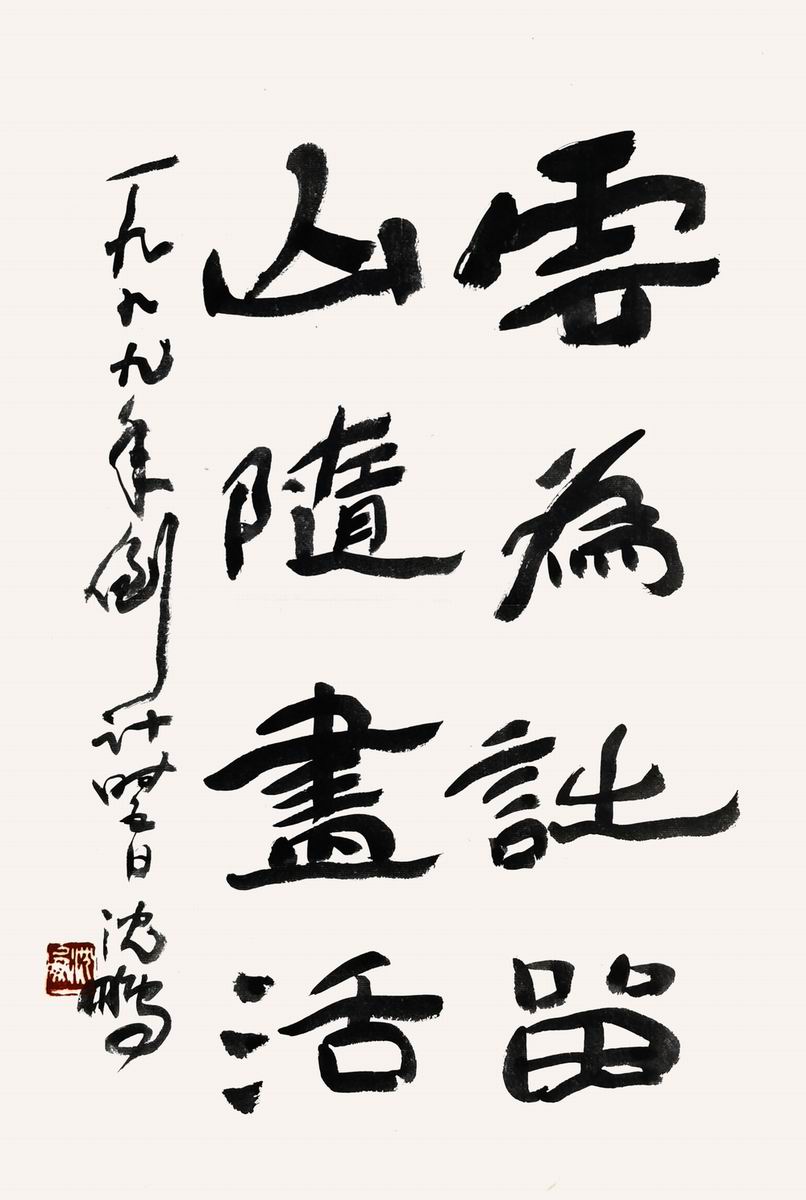 雲為詩留
山隨畫活
一九九九年倒計時日沈鵬